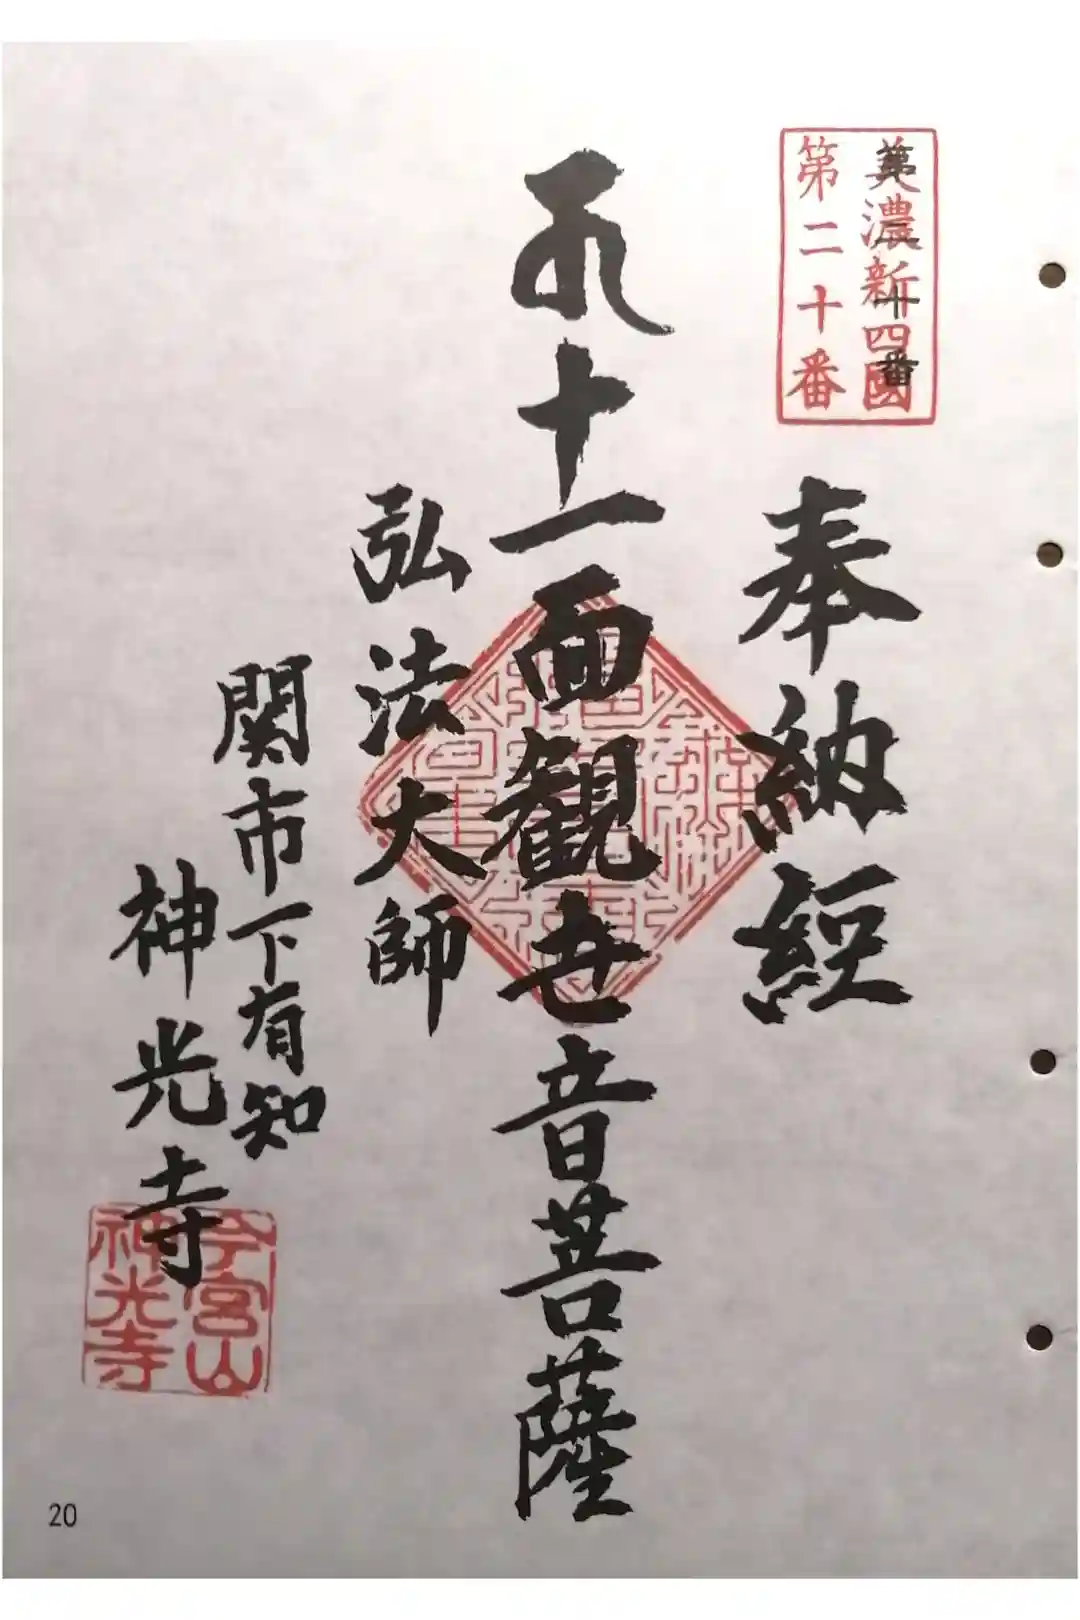 美濃新四國
第二十番
第二十番
奉納經
十一面観世音菩薩
弘法大師
関市下有知
神光寺
今宮山
神光寺
20